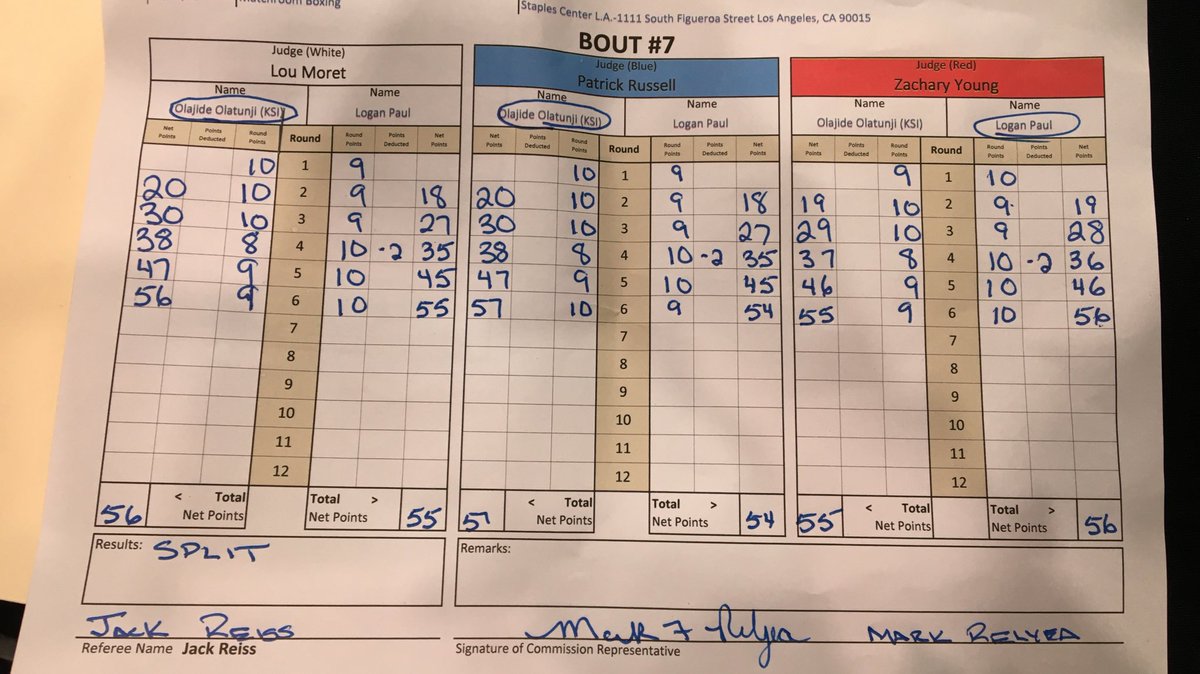 Matchroom Boxing
Staples Center L.A.-1111 South Figueroa Street Los Angeles, CA 90015
BOUT #7
Judge (White)
Lou Moret
Name Name
Olajide Olatunji (KSI) Logan Paul
Net Points Points Deducted Round Points Round Round Points Points Deducted Net Points
10 1 9
20 10 2 9 18
30 10 3 9 27
38 8 4 10 -2 35
47 9 5 10 45
56 9 6 10 55
7
8
9
10
11
12
56 < Total Net Points Total > Net Points 55
Judge (Blue)
Patrick Russell
Name Name
Olajide Olatunji (KSI) Logan Paul
Net Points Points Deducted Round Points Round Round Points Points Deducted Net Points
10 1 9
20 10 2 9 18
30 10 3 9 27
38 8 4 10 -2 35
47 9 5 10 45
57 10 6 9 54
7
8
9
10
11
12
57 < Total Net Points Total > Net Points 54
Judge (Red)
Zachary Young
Name Name
Olajide Olatunji (KSI) Logan Paul
Net Points Points Deducted Round Points Round Round Points Points Deducted Net Points
9 1 10
19 10 2 9 19
29 10 3 9 28
37 8 4 10 -2 36
46 9 5 10 46
55 9 6 10 56
7
8
9
10
11
12
55 < Total Net Points Total > Net Points 56
Results: SPLIT
Remarks:
JACK REISS
Referee Name Jack Reiss
Mark F Relyea MARK RELYEA
Signature of Commission Representative